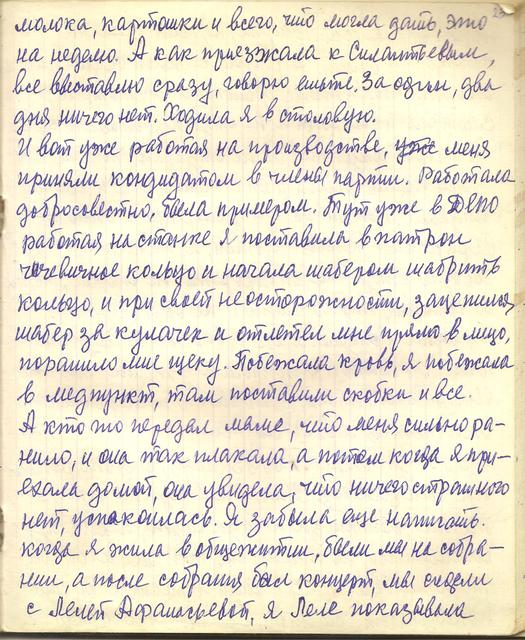 молока, картошки и всего, что могла дать, это
на неделю. А как приезжала к Силантьевым,
все выставлю сразу, говорю ешьте. За один, два
дня ничего нет. Ходила я в столовую.
И вот уже работая на производстве, уже меня
приняли кондидатом в члены партии. Работала
добросовестно, была примером. Тут уже в ДЕПО
работая на станке я поставила в патрон
чичевичное кольцо и начала шабером шабрить
кольцо, и при своей неосторожности, зацепился
шабер за кулачек и отлетел мне прямо в лицо,
поранило мне щеку. Побежала кровь, я побежала
в медпункт, там поставили скобки и все.
А кто то передал маме, что меня сильно ра-
нило, и она так плакала, а потом когда я при-
ехала домой, она увидела, что ничего страшного
нет, успакоилась. Я забыла еще написать.
когда я жила в общежитии, были мы на собра-
нии, а после собрания был концерт, мы сидели
с Лелей Афанасьевой, я Леле показывала